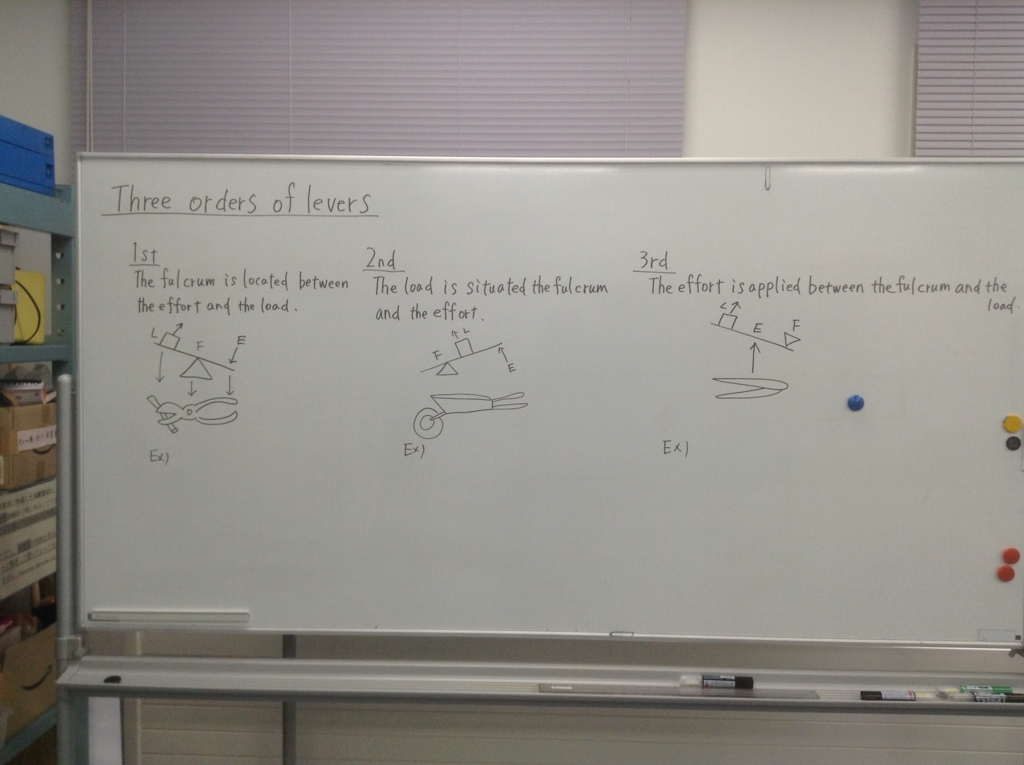 Three orders of levers
1st
The fulcrum is located between
the effort and the load.
L
F
E
Ex)
2nd
The load is situated the fulcrum
and the effort.
L
F
E
Ex)
3rd
The effort is applied between the fulcrum and the
load.
L
E
F
Ex)